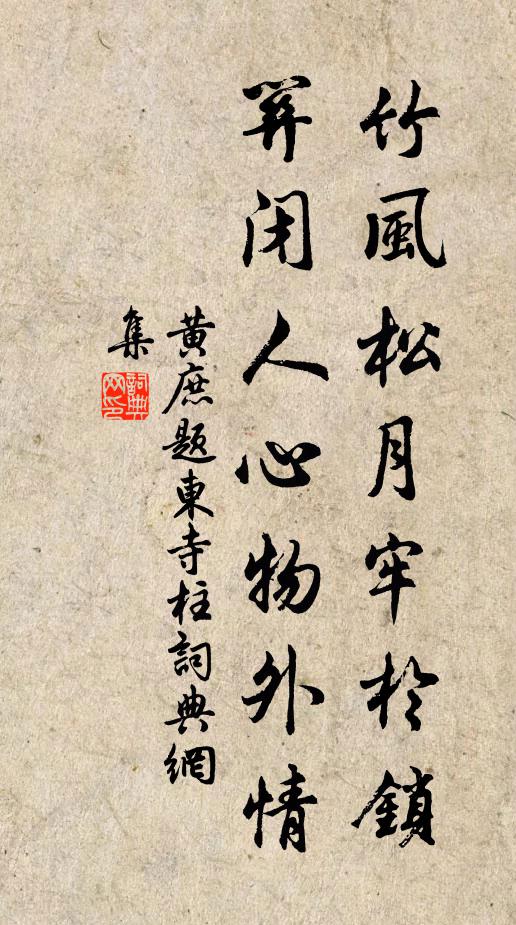 竹風松月牢於鎖
關閉人心物外情
黃庶題東寺柱詞典網
集
詞典網印